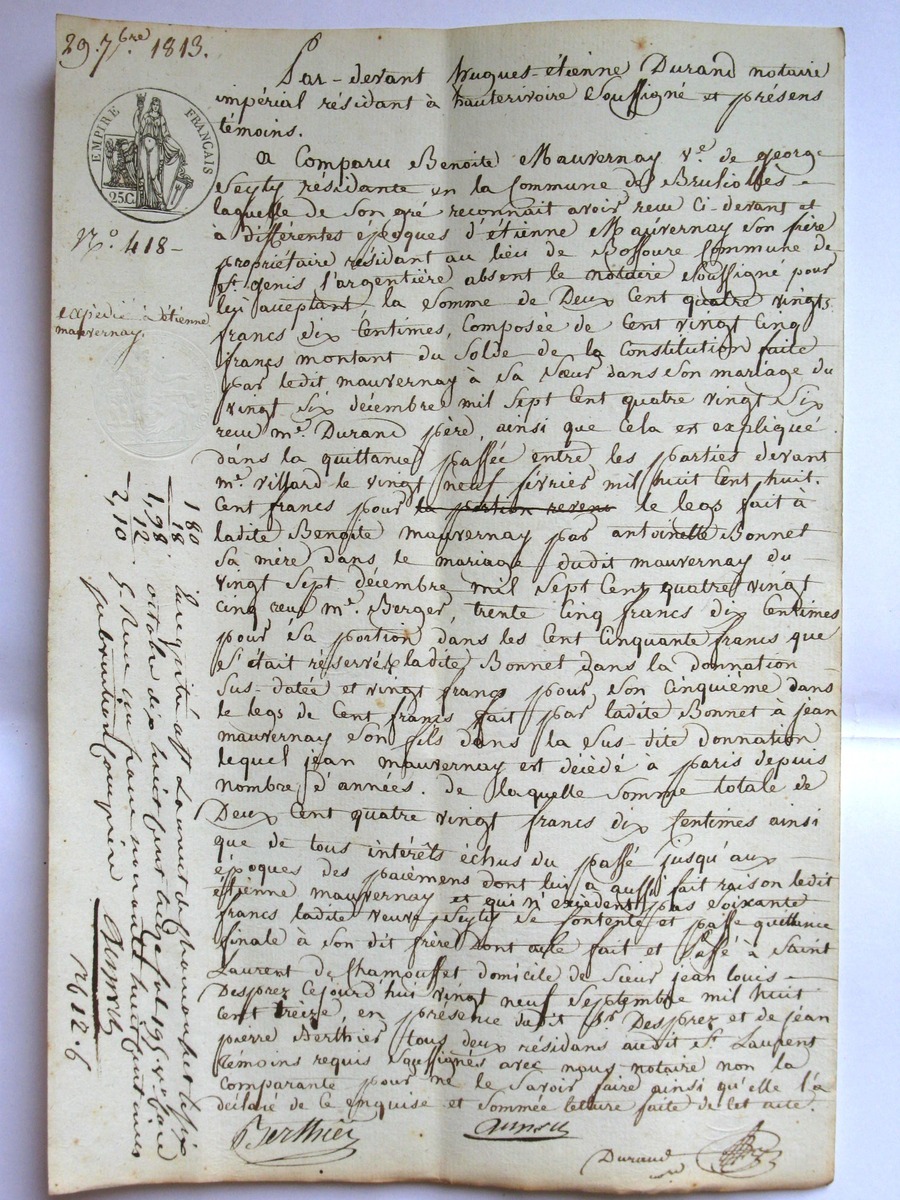 29. 7bre 1813.
EMPIRE FRANÇAIS
25.C.
N.o 418 -
expédié à étienne
mauvernay.
Par-devant hugues-étienne Durand notaire
impérial résidant à hauterivoire Soussigné et présens
témoins.
a Comparu Benoite Mauvernay v.e de george
Seyty résidante en la Commune de Brussiolles -
laquelle de Son gré reconnait avoir reçu Ci-devant et
à différentes époques d'étienne Mauvernay Son frère
propriétaire résidant au lieu de Commune de
St. genis l'argentière absent le notaire Soussigné pour
lui acceptant, la Somme de Deux Cent quatre vingts
francs dix Centimes, Composée de Cent vingt Cinq
francs montant du Solde de la Constitution faite
par ledit mauvernay à Sa Sœur dans Son mariage du
vingt Six décembre mil Sept Cent quatre vingt Six
reçu m.e Durand père, ainsi que Cela est expliqué
dans la quittance passée entre les parties devant
m.e Villard le vingt neuf février mil huit Cent huit.
Cent francs pour la portion le legs fait à
ladite Benoite mauvernay par antoinette Bonnet
Sa mère dans le mariage dudit mauvernay du
vingt Sept décembre mil Sept Cent quatre vingt
Cinq reçu m.e Berger, trente Cinq francs dix Centimes
pour Sa portion dans les Cent Cinquante francs que
S'était réservée ladite Bonnet dans la donnation
Sus-datée et vingt francs pour Son Cinquième dans
le legs de Cent francs fait par ladite Bonnet à jean
mauvernay Son fils dans la Sus-dite donnation
lequel jean mauvernay est décédé à paris depuis
nombre d'années. de laquelle Somme totale de
Deux Cent quatre vingt francs dix Centimes ainsi
que de tous intérêts échus du passé jusqu'aux -
époques des paiémens dont lui a aussi fait raison ledit
étienne mauvernay et qui n'excèdent pas Soixante
francs ladite veuve Seyty Se Contente et passe quittance
finale à Son dit frère dont acte fait et Passé à Saint
Laurent de Chamousset domicile de Sieur jean louis -
Desprez Cejourd'hui vingt neuf Septembre mil huit
Cent treize, en présence dudit Sr. Desprez et de jean
pierre Berthier tous deux résidans audit St. Laurent
témoins requis Soussignés avec nous notaire non la
Comparante pour ne le Savoir faire ainsi qu'elle l'a
déclaré de Ce enquise et Sommée lecture faite de Cet acte.
Berthier
Durand
180
18.
1,98
12
2,10
Enregistré à St Laurent de chamousset le Six
octobre dix huit cent treize fol 195
Reçu un franc quatre vingt huit Centimes
Subvention Comprise